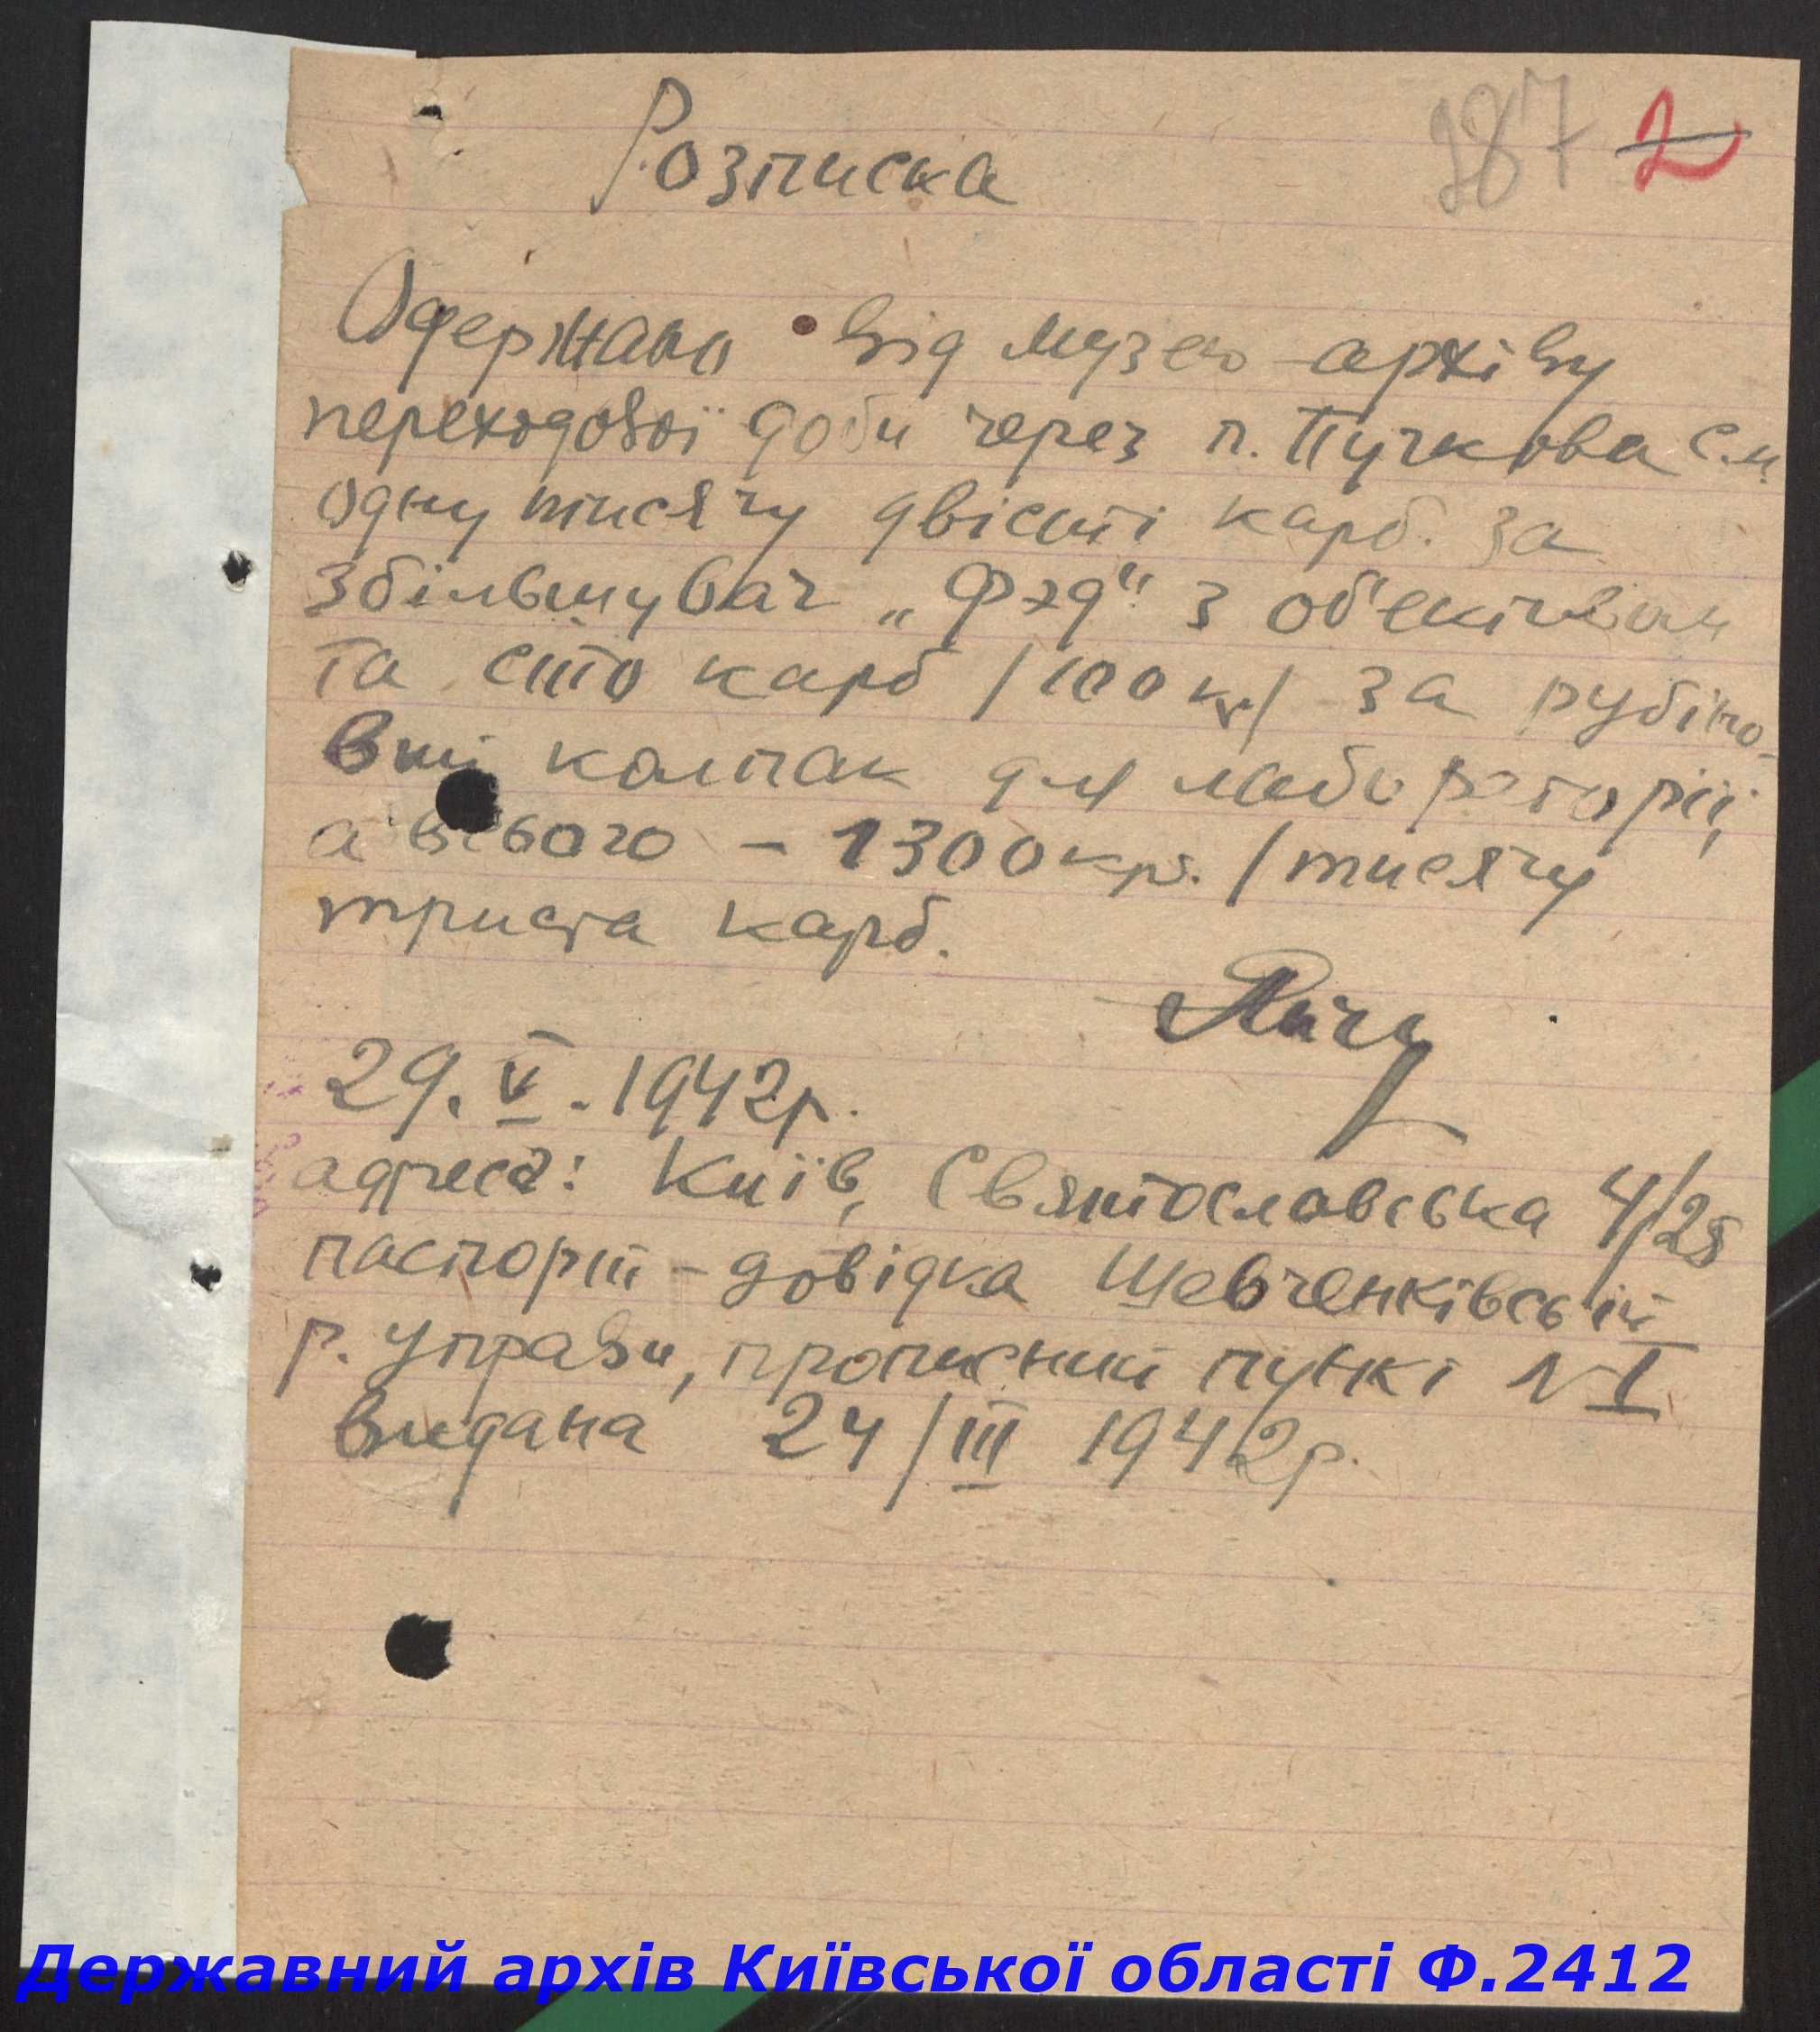 Розписка
187 2
Одержано від Музею-архіву
переходової доби через п. Пучкова С.М
одну тисячу двісті карб. за
збільшувач „Фэд" з об'єктивом
та сто карб /100 кр/ за рубіно-
вий колпак для лабораторії,
а всього - 1300 кр. /тисячу
триста карб.
29. V. 1942р.
адреса: Київ, Святославська 4/28
паспорт - довідка Шевченківській
р. управи, прописний пункт № I
видана 24/III 1942р.
Державний архів Київської області Ф.2412